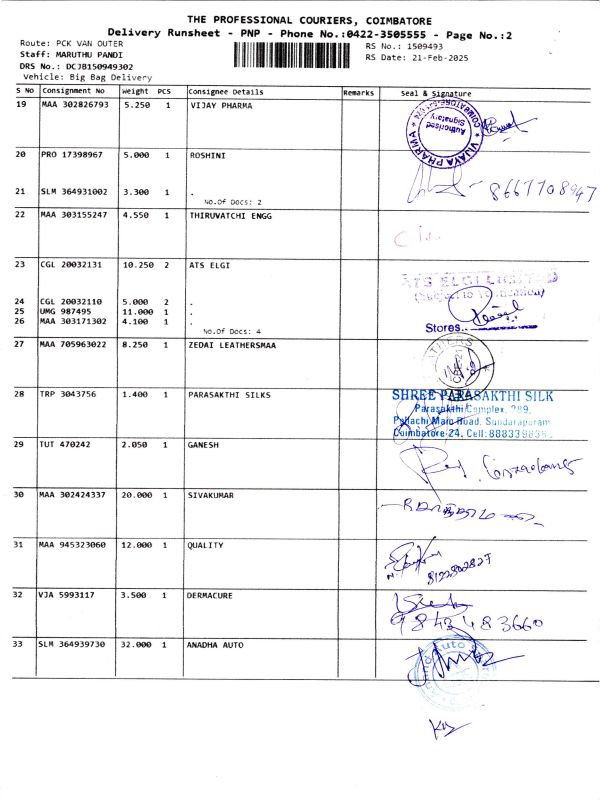 THE PROFESSIONAL COURIERS, COIMBATORE
Delivery Runsheet - PNP - Phone No.:0422-3505555 - Page No.:2
Route: PCK VAN OUTER RS No.: 1509493
Staff: MARUTHU PANDI RS Date: 21-Feb-2025
DRS No.: DCJB150949302
Vehicle: Big Bag Delivery
S No Consignment No Weight PCS Consignee Details Remarks Seal & Signature
19 MAA 302826793 5.250 1 VIJAY PHARMA
VIJAYA PHARMA
Authorised
Signatary
20 PRO 17398967 5.000 1 ROSHINI
21 SLM 364931002 3.300 1 . 8667708947
No.Of Docs: 2
22 MAA 303155247 4.550 1 THIRUVATCHI ENGG
23 CGL 20032131 10.250 2 ATS ELGI
ATS ELGI LIMITED
(Subject to Verification)
24 CGL 20032110 5.000 2 .
25 UMG 987495 11.000 1 .
26 MAA 303171302 4.100 1 .
Stores
No.Of Docs: 4
27 MAA 705963022 8.250 1 ZEDAI LEATHERSMAA
28 TRP 3043756 1.400 1 PARASAKTHI SILKS
SHREE PARASAKTHI SILK
Parasakthi Complex,
Pollachi Main Road, Sundarapuram
Coimbatore-24, Cell:
29 TUT 470242 2.050 1 GANESH
30 MAA 302424337 20.000 1 SIVAKUMAR
31 MAA 945323060 12.000 1 QUALITY
32 VJA 5993117 3.500 1 DERMACURE
9843483660
33 SLM 364939730 32.000 1 ANADHA AUTO